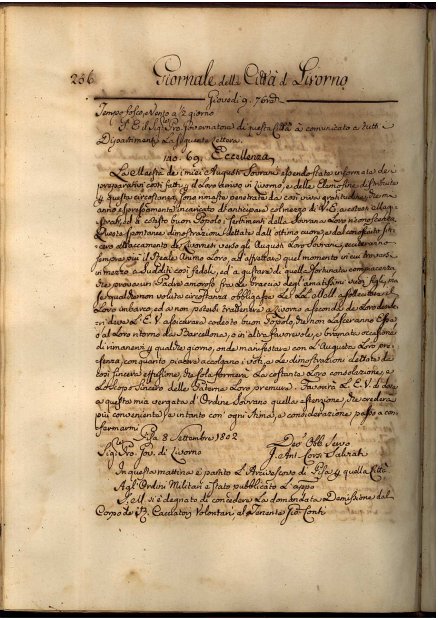 256 Giornale della Città di Livorno
Giovedì 9. 7bre
Tempo fosco, e Vento a ½ giorno
S. E. il Sig. Pro. Governatore di questa Città à comunicato a tutti i
Dipartimenti la seguente Lettera.
140. 69. Eccellenza
La Maestà dei miei Augusti Sovrani essendo state informate dei
preparativi con fatti, il Loro arrivo in Livorno, e delle Elemosine distribuite
questa circostanza, sono rimaste penetrate da così viva gratitudine, che mi
anno espressamente incaricato di anticipare col mezzo di V. E. a cotesti
e a cotesto buon Popolo, i sentimenti della Sovrana Loro riconoscenza.
Queste spontanee dimostrazioni dettate dall'ottimo cuore, e dal
attaccamento dei Livornesi verso gli Augusti Loro Sovrani, ecciteranno
sempre più il Reale Animo Loro ad affrettare quel momento in cui
in mezzo a Sudditi così fedeli, ed a gustare di quella fortunata compiacenza
che prova un Padre amoroso fra le braccia degl'amatissimi suoi figli, ma
se qualche non voluta circostanza obbligasse Le LL. MM. affrettare il
Loro imbarco, ed a non potersi trattenere a Livorno a seconda de Loro
deve L' E. V. assicurare codesto buon Popolo, che non Lasceranno Esse
al Loro ritorno da Barcellona, o in altra favorevole, e bramata occasione
di rimanervi qualche giorno, onde manifestare con L'Augusta Loro pre
senza, con quanto piacere accolgano i voti, e Le dimostrazioni dettate da
così sincera effusione, che sola formerà La costante Loro consolazione, e
Lo scopo sincero delle Paterne Loro premure. Favorirà L' E. V. di dare
a questa mia vergata d'Ordine Sovrano quella estensione, che crederà
più conveniente, e intanto con ogni stima, e considerazione passo a con
fermarmi
Pisa 8 Settembre 1802
Sig. Pro. Gov. di Livorno Dev.o Obb. Servo
J. Ant. Corsi Salviati
In questa mattina è partito L'Arcivescovo di Pisa quella Città
Agl'Ordini Militari è stato pubblicato L'appo
S. M. si è degnato di concedere La domandata Demissione dal
Corpo de Cacciatori Volontari, al Tenente Gio. Conti